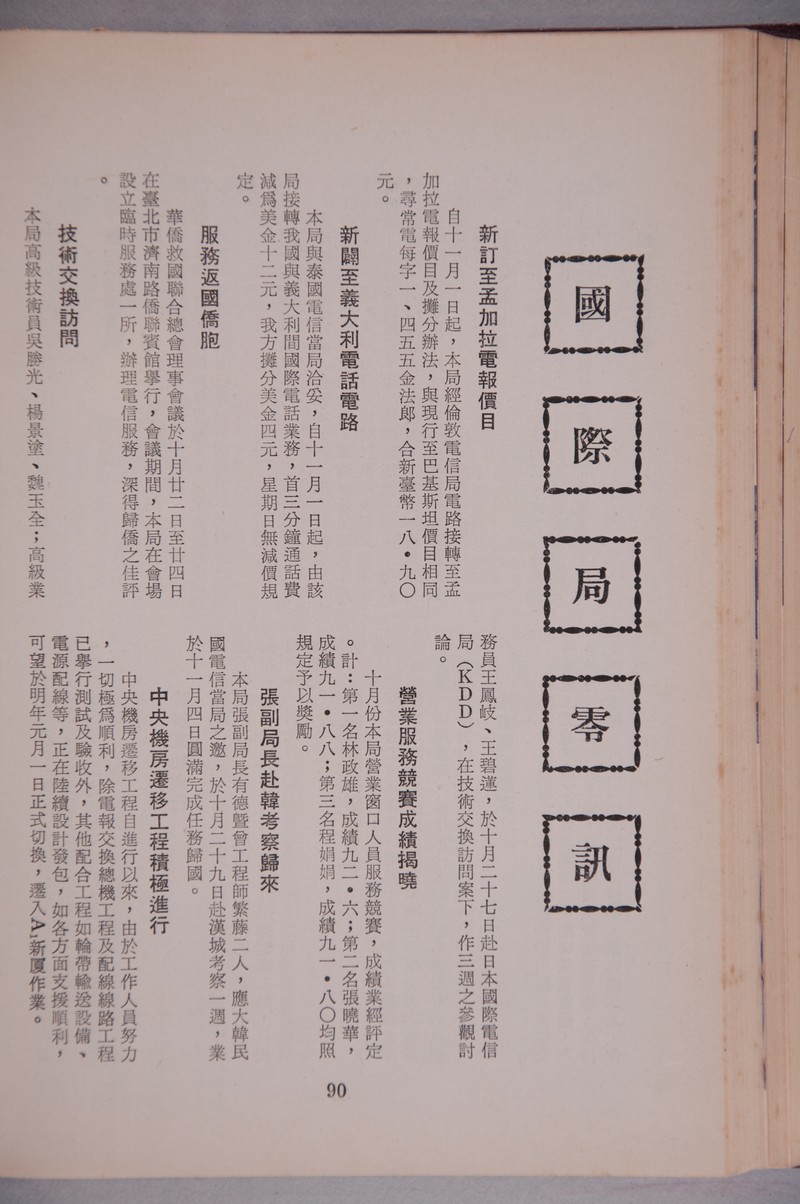 國際局零訊
新訂至孟加拉電報價目
自十一月一日起，本局經倫敦電信局電路接轉至孟
加拉電報價目及攤分辦法，與現行至巴基斯坦價目相同
，尋常電每字一、四五五金法郎，合新臺幣一八•九〇
元。
新闢至義大利電話電路
本局與泰國電信當局洽妥，自十一月一日起，由該
局接轉我國與義大利間國際電話業務，首三分鐘通話費
減爲美金十二元，我方攤分美金四元，星期日無減價規
定。
服務返國僑胞
華僑救國聯合總會理事會議於十月廿二日至廿四日
在臺北市濟南路僑聯賓館舉行，會議期間，本局在會場
設立臨時服務處一所，辦理電信服務，深得歸僑之佳評
。
技術交換訪問
本局高級技術員吳勝光、楊景塗、魏玉全；高級業
務員王鳳岐、王碧蓮，於十月二十七日赴日本國際電信
局（KDD），在技術交換訪問案下，作三週之參觀討
論。
營業服務競賽成績揭曉
十月份本局營業窗口人員服務競賽，成績業經評定
。計：第一名林政雄，成績九二•六；第二名張曉華，
成績九一•八八；第三名程娟娟，成績九一•八〇均照
規定予以獎勵。
張副局長赴韓考察歸來
本局張副局長有德暨曾工程師繁藤二人，應大韓民
國電信當局之邀，於十月二十九日赴漢城考察一週，業
於十一月四日圓滿完成任務歸國。
中央機房遷移工程積極進行
中央機房遷移工程自進行以來，由於工作人員努力
，一切極爲順利，除電報交換總機工程及配線線路工程
已舉行測試及驗收外，其他配合工程如輸帶輸送設備、
電源配線等，正在陸續設計發包，如各方面支援順利，
可望於明年元月一日正式切換，遷入A,新厦作業。
90